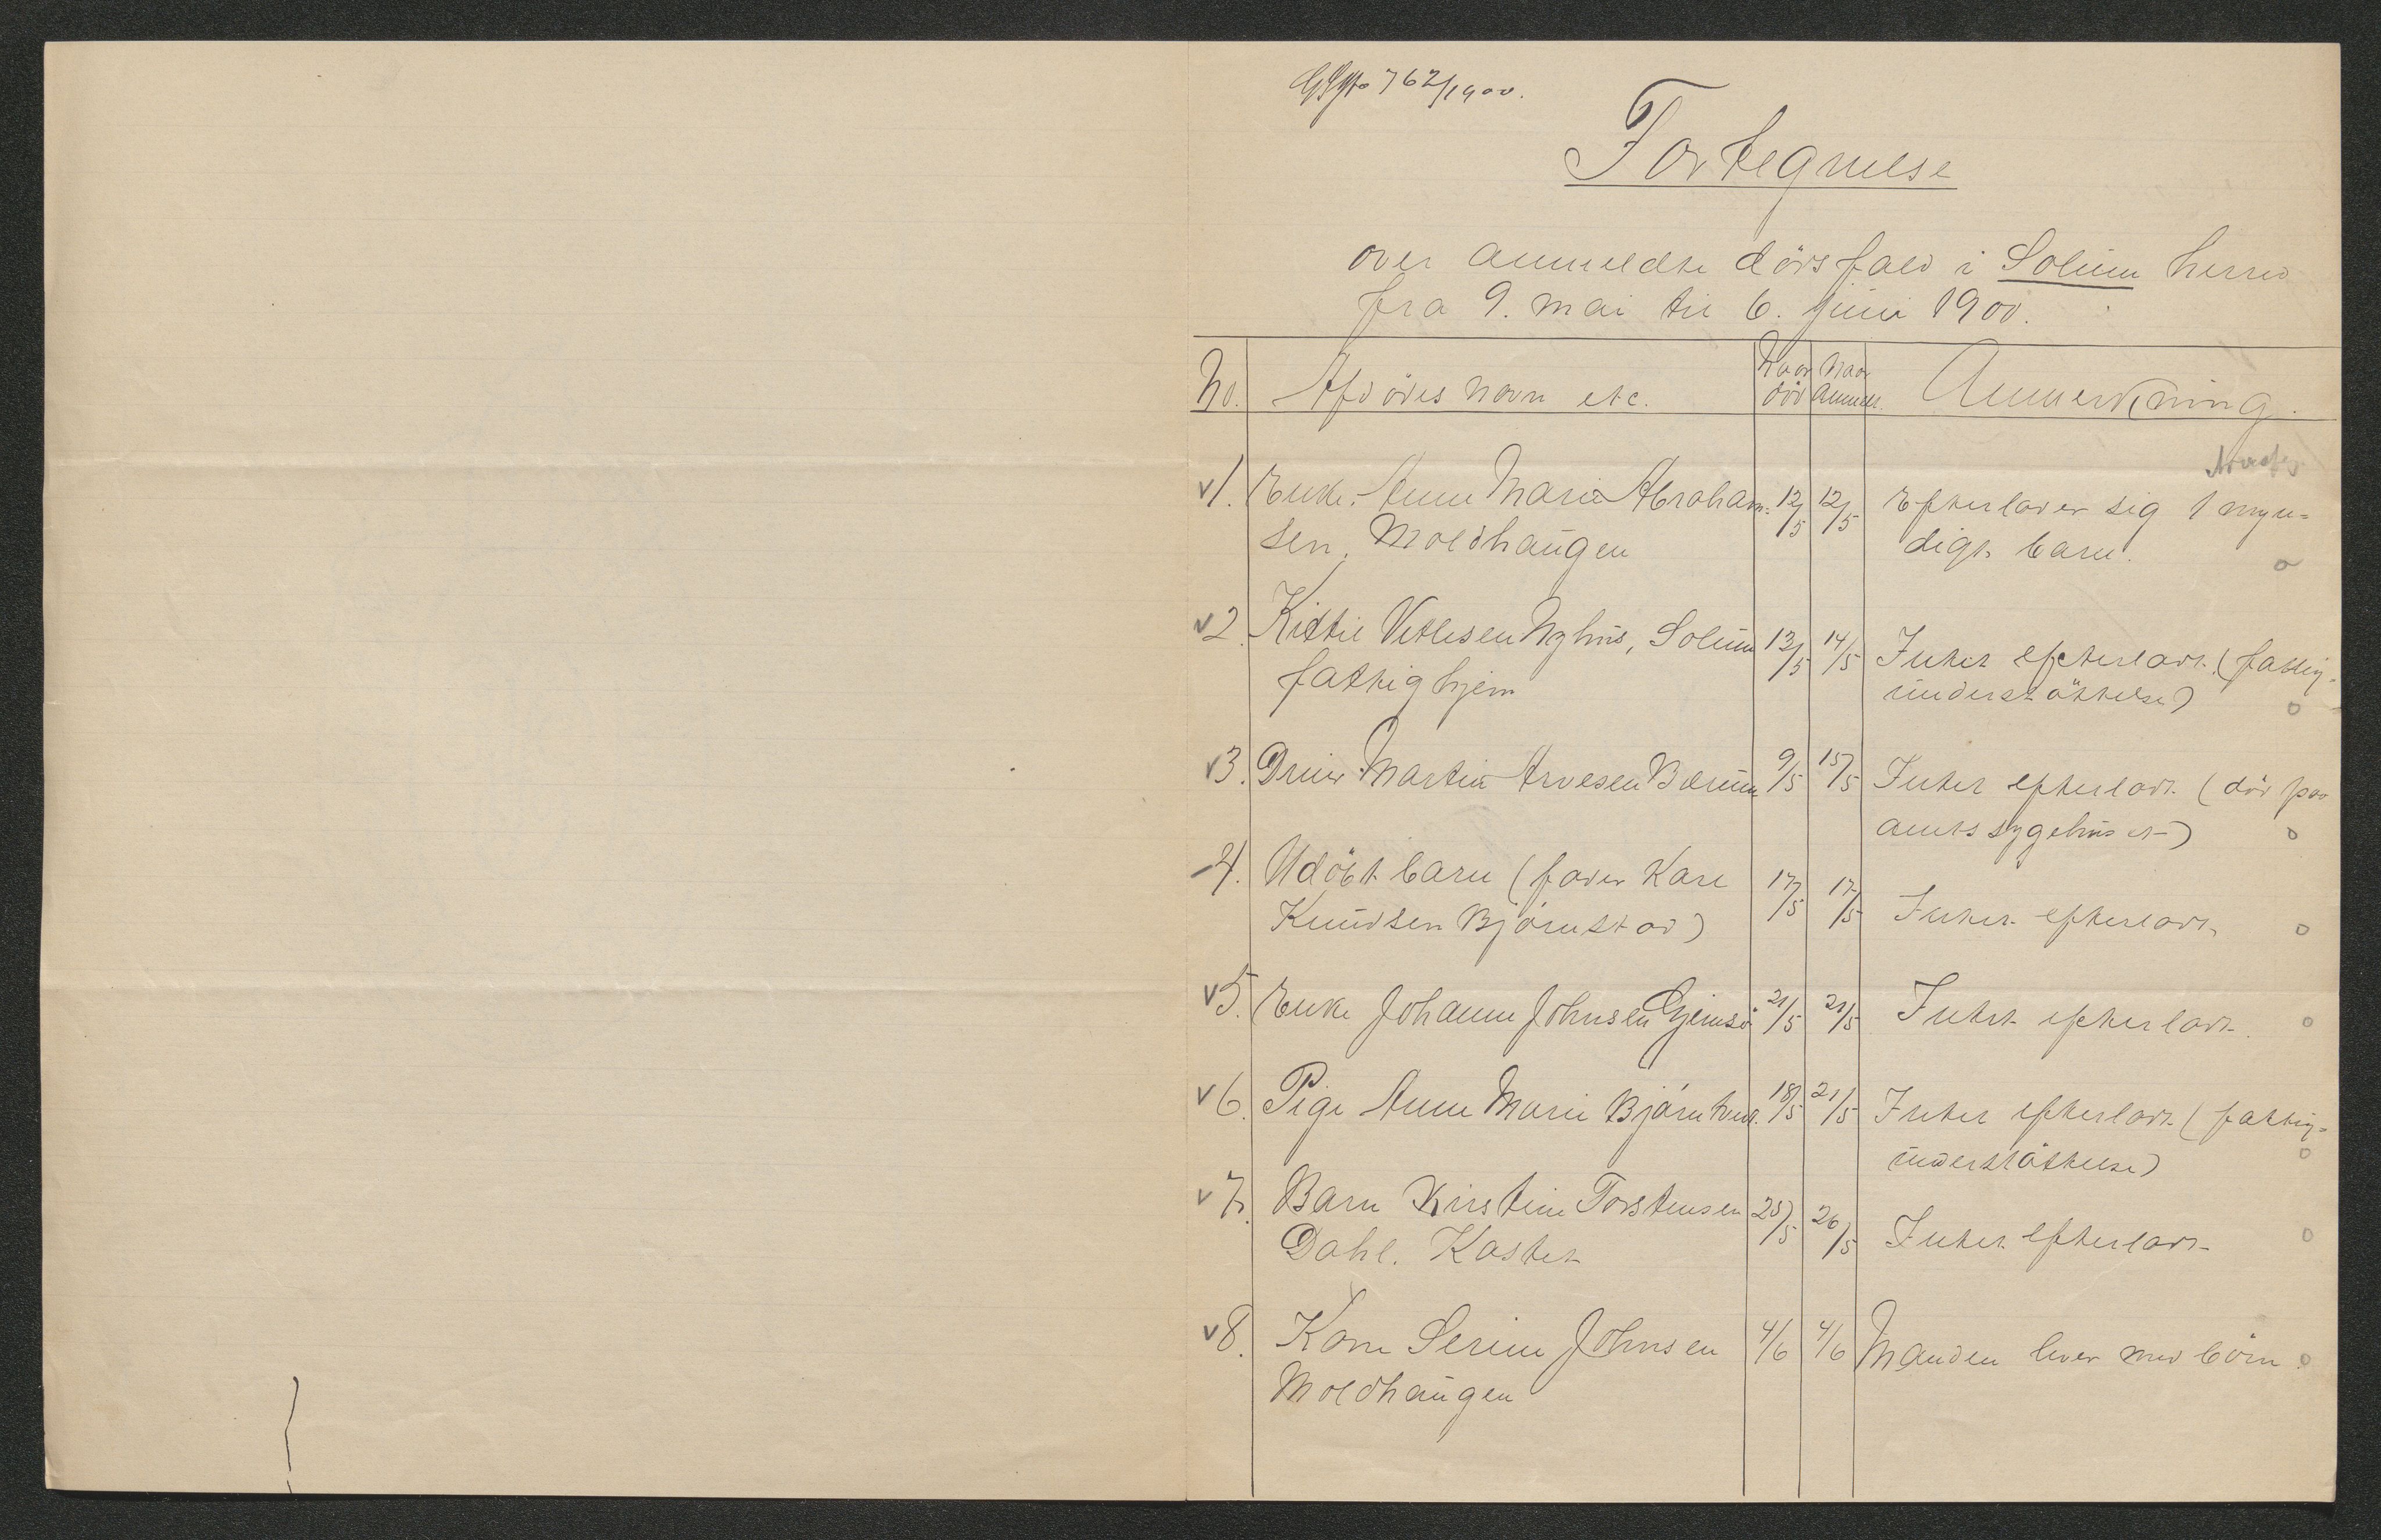 762/1900.
Fortegnelse
over anmeldte dörsfald i Solum herred
fra 9. mai til 6. juni 1900.
No. Afdödes navn etc. Naar död Naar anmeldt. Anmerkning.
v 1. Enke Anne Maria Abraham- 12/5 12/5 Efterlader sig 1 myn-
sen, Moldhaugen digt barn.
v 2. Kittil Vetlesen Nyhus, Solum 13/5 14/5 Intet efterladt. (fattig-
fattighjem understöttelse)
v 3. Martin Arvesen Bærum 9/5 15/5 Intet efterladt (död paa
amtssygehuset)
4. Udöbt barn (fader Karl 17/5 17/5 Intet efterladt.
Knudsen Björnstad)
v 5. Enke Johanne Johnsen Gjemsö 21/5 21/5 Intet efterladt.
v 6. Pige Anne Marie 18/5 21/5 Intet efterladt (fattig-
understöttelse)
v 7. Barn Kirstine Torstensen 25/5 26/5 Intet efterladt
Dahl. Kastet
v 8. Kone Serine Johnsen 4/6 4/6 Manden lever med börn.
Moldhaugen